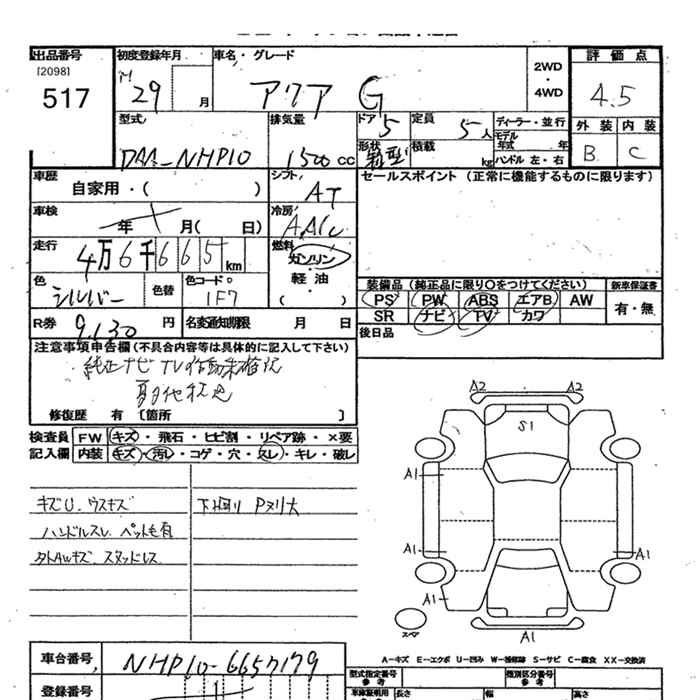 出品番号
[2098]
517
初度登録年月
H 29 月
車名・グレード
アクア G
2WD
・
4WD
評価点
4.5
外装 内装
B C
型式
DAA-NHP10
排気量
1500 cc
ドア 5
形状 箱型
定員 5人
積載 kg
ディーラー・並行
モデル
年式 年
ハンドル 左・右
車歴
自家用・( )
シフト
AT
車検
年 月( 日)
冷房
AAC
走行
4万6千665km
燃料
ガソリン
軽油
( )
色
シルバー
色替
色コード
1F7
R券 9,630 円
名変通知期限 月 日
セールスポイント (正常に機能するものに限ります)
装備品 (純正品に限り〇をつけてください)
新車保証書
PS PW ABS エアB AW
SR ナビ TV カワ
有・無
後日品
注意事項申告欄 (不具合内容等は具体的に記入して下さい)
純正ナビ TV作動未確認
修復歴 有 [箇所 ]
検査員
記入欄
FW キズ・飛石・ヒビ割・リペア跡・×要
内装 キズ・汚レ・コゲ・穴・スレ・キレ・破レ
キズU. ウスキズ
ハンドルスレ ペット毛有
タトAWキズ. スタッドレス
下廻り Pヌリ大
A2 A2
S1
A1
A1 A1
A1
スペア
A1
A-キズ E-エクボ U-凹み W-補修跡 S-サビ C-腐食 XX-交換済
車台番号
NHP10-6657179
登録番号
型式指定番号
参考
類別区分番号
参考
長さ 幅 高さ